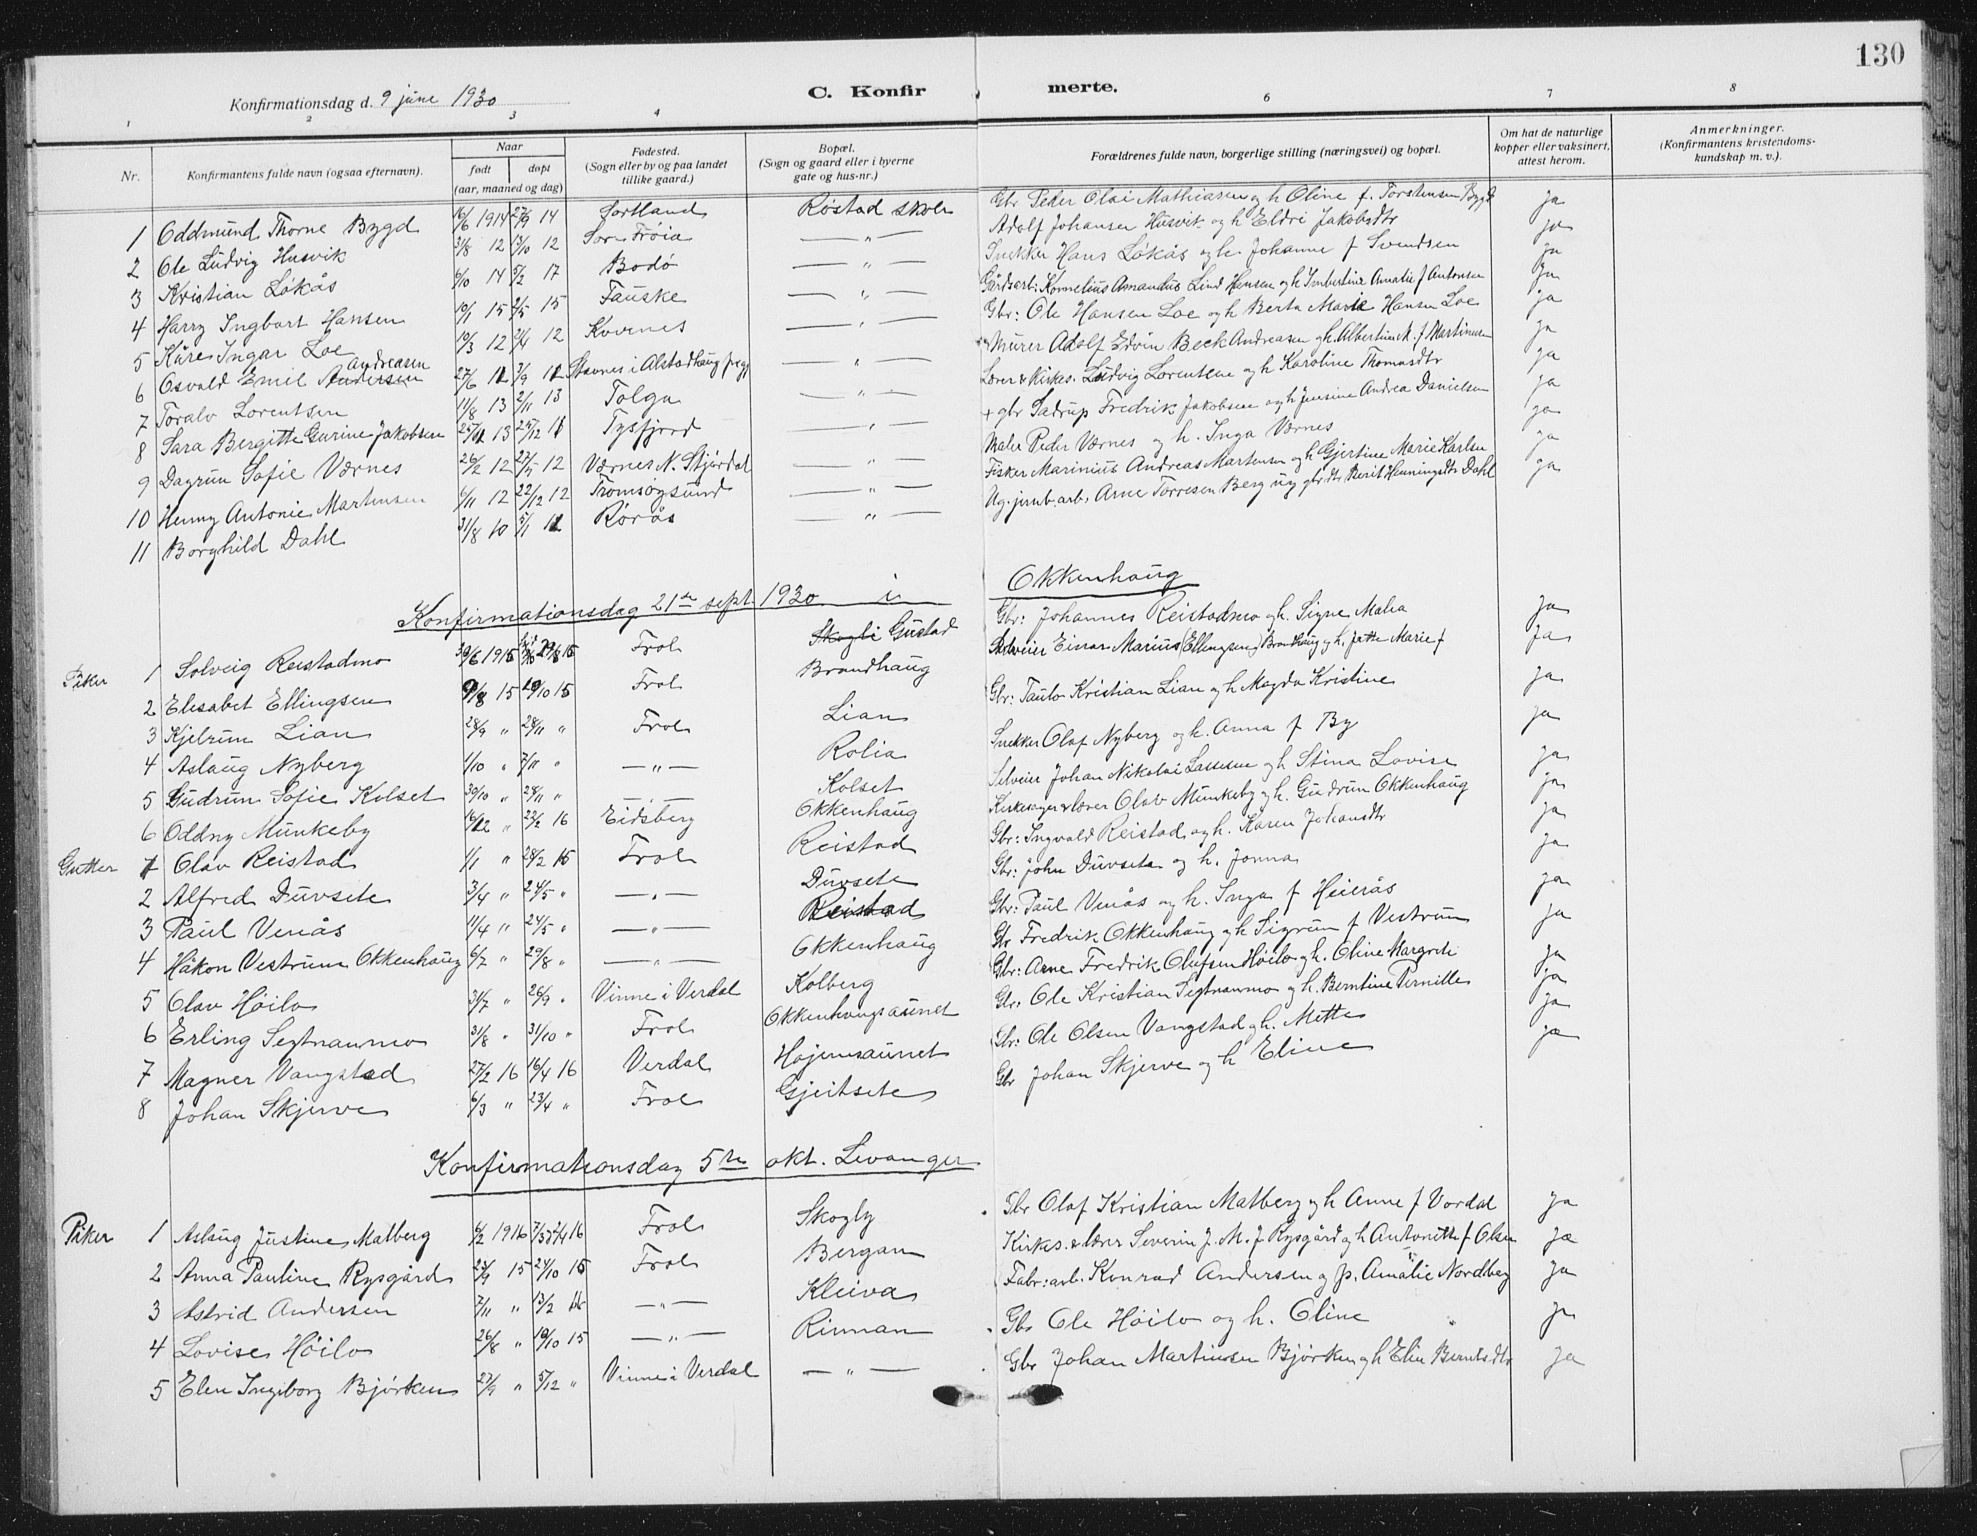 130
Konfirmationsdag d. 9 june 1930
C. Konfir merte.
1 2 3 4 6 7 8
Nr.
Konfirmantens fulde navn (ogsaa efternavn).
Naar
født døpt
(aar, maaned og dag)
Fødested.
(Sogn eller by og paa landet
tillike gaard.)
Bopæl.
(Sogn og gaard eller i byerne
gate og hus-nr.)
Forældrenes fulde navn, borgerlige stilling (næringsvei) og bopæl.
Om hat de naturlige
kopper eller vaksinert,
attest herom.
Anmerkninger.
(Konfirmantens kristendoms-
kundskap m. v.).
1 Oddmund Thorne Bygd 16/6 1914 27/9 14 Sortland Røstad skole Gbr Peder Olai Mathiasen og h Oline f. Torstensen Bygd ja
2 Ole Ludvig Husvik 31/8 12 13/10 12 Sør-Frøia — " — Adolf Johansen Husvik og h Eldri Jakobsdtr ja
3 Kristian Løkås 6/10 14 5/2 17 Bodø — " — Snekker Hans Løkås og h. Johanne f Svendsen ja
4 Harry Ingbart Hansen 10/1 15 2/5 15 Fauske — " — Gårdsarb: Kornelius Amandus Lind Hansen og h Imbertine Amalie f Antonsen ja
5 Kåre Ingar Loe 10/3 12 21/4 12 Kvernes — " — Gbr: Ole Hansen Loe og h Berta Marie Hansen Loe ja
6 Osvald Emil Andersen Andreasen 27/6 11 3/9 11 Stavnes i Alstadhaug pregj " Murer Adolf Edvin Beck Andreasen og h. Albertine K. f Martinsen ja
7 Toralv Lorentsen 11/8 13 2/11 13 Tolga — " — Lærer & Kirkes. Ludvig Lorentsen og h Karoline Thomasdtr ja
8 Sara Bergitte Gurine Jakobsen 13 Tysfjord — " — + gbr Sadrup Fredrik Jakobsen og h Jensine Andrea Danielsen ja
9 Dagrun Sofie Værnes 26/2 12 27/5 12 Værnes N. Stjørdal — " — Maler Peder Værnes og h. Inga Værnes ja
10 Henny Antonie Martensen 6/11 12 22/12 12 Tromsøysund — " — Fisker Marinius Andreas Martensen og h Gjertine Marie Karlsen ja
11 Borghild Dahl 31/8 10 5/1 11 Røros — " — Ug. jernb. arb. Arne Torresen Berg ug gbrdtr Berit Henningsdtr Dahl ja
Konfirmationsdag 21de sept. 1930 i Okkenhaug
Piker 1 Solveig Reistadmo 30/6 1915 29/8 15 Frol Skogli Gustad Gbr: Johannes Reistadmo og h. Signe Malia ja
2 Elisabet Ellingsen 9/8 15 10/10 15 Frol Brandhaug Selveier Einar Marius (Ellingsen) Brandhaug og h. Jette Marie f ja
3 Kjelrun Lian 28/9 " 28/11 " Frol Lian Gbr: Paulo Kristian Lian og h Magda Kristine ja
4 Aslaug Nyberg 1/10 " 7/11 " — " — Rolia Snekker Olaf Nyberg og h. Anna f By ja
5 Gudrun Sofie Kolset 30/10 " 28/11 " — Kolset Selveier Johan Nikolai Lassesen og h Stina Lovise ja
6 Oddny Munkeby 16/12 " 22/2 16 Eidsberg Okkenhaug Kirkesanger & lærer Olav Munkeby og h. Gudrun Okkenhaug ja
Gutter 1 Olav Reistad 1/1 " 28/2 15 Frol Reistad Gbr: Ingvald Reistad og h. Karen Johansdtr ja
2 Alfred Duvsete 3/4 " 24/5 " — " — Duvsete Gbr: John Duvsete og h. Jonna ja
3 Paul Venås 11/4 " 24/5 " — " — Reistad Gbr: Paul Venås og h. Inga f Heierås ja
4 Håkon Vestrum Okkenhaug 6/7 " 29/8 " — " — Okkenhaug Gbr Fredrik Okkenhaug og h Sigrun f Vestrum ja
5 Olav Høilo 31/7 " 26/9 " Vinne i Verdal Kolberg Gbr: Arne Fredrik Olufsen Høilo og h. Oline Margrete ja
6 Erling Segtnanmo 31/8 " 31/10 " Frol Okkenhaugsaunet Gbr: Ole Kristian Segtnanmo og h. Berntine Pernille ja
7 Magner Vangstad 27/2 16 16/4 16 Verdal Højemsaunet Gbr: Ole Olsen Vangstad og h. Mette ja
8 Johan Skjerve 6/3 " 23/4 " Frol Gjeitsete Gbr Johan Skjerve og h Eline ja
Konfirmationsdag 5te okt. Levanger
Piker 1 Aslaug Justine Matberg 6/2 1916 16 Frol Skogly Gbr Olaf Kristian Matberg og h Anne f Vordal ja
2 Anna Pauline Rysgård 15 24/10 15 Frol Bergan Kirkes. & lærer Severin J. M. J Rysgård og h Antonette f Olsen ja
3 Astrid Andersen 7/11 " 13/2 16 — " — Kleiva Fabr: arb. Konrad Andersen og p. Amalie Nordberg ja
4 Lovise Høilo 26/8 " 10/10 15 — " — Rinnan Gbr Ole Høilo og h. Oline ja
5 Elen Ingiborg Bjørken 27/9 " 5/12 " Vinne i Verdal — " — Gbr Johan Martinsen Bjørken og h Elin Berntsdtr ja